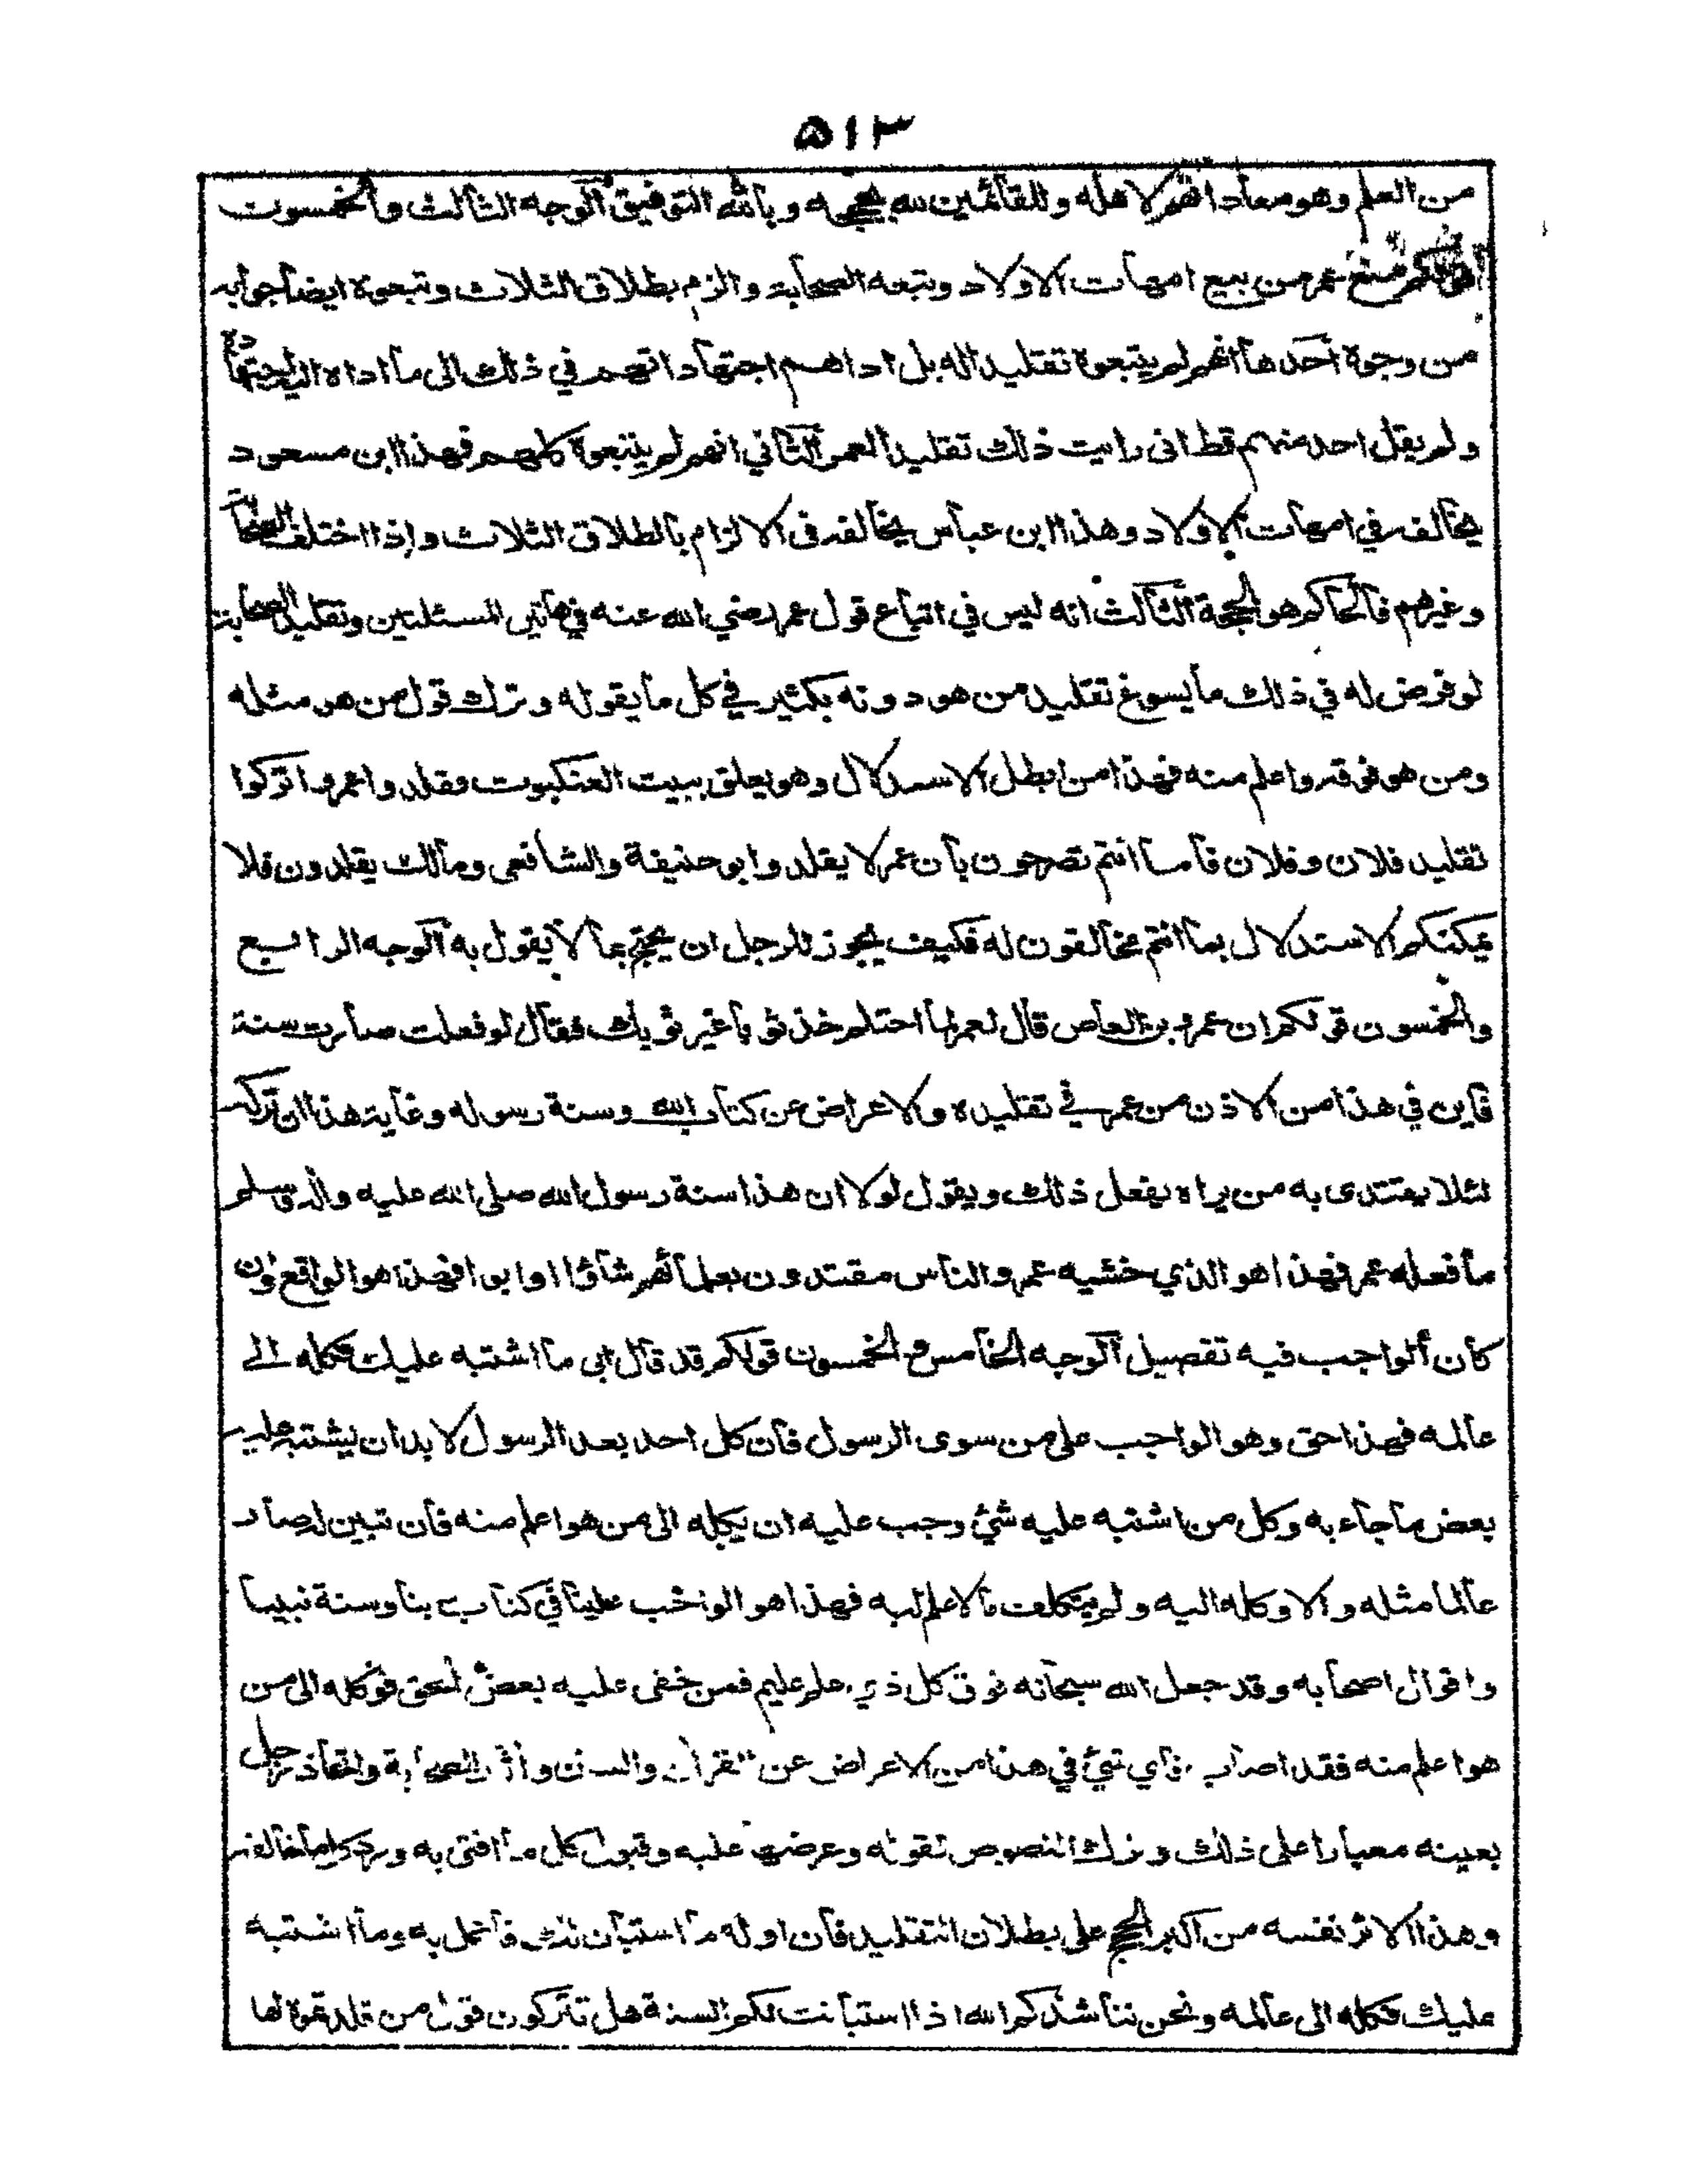 ۵۱۳
من العلم وهو معاد انهم لاهله وللقائمين لله بحججه وبالله التوفيق الوجه الثالث والخمسون
قولكم منع عمر من بيع امهات الاولاد وتبعه الصحابة والزم بطلاق الثلاث وتبعوه ايضا جوابه
من وجوه احدها انهم لم يتبعوه تقليدا له بل اداهم اجتهادهم في ذلك الى ما اداه اليه اجتهاده
ولم يقل احد منهم قط اني رايت ذلك تقليدا لعمر الثاني انهم لم يتبعوه كلهم فهذا ابن مسعود
يخالفه في امهات الاولاد وهذا ابن عباس يخالفه في الالزام بالطلاق الثلاث واذا اختلف الصحابة
وغيرهم فالحاكم هو الحجة الثالث انه ليس في اتباع قول عمر رضي الله عنه في هاتين المسئلتين وتقليد الصحابة
لو فرض له في ذلك ما يسوغ تقليد من هو دونه بكثير في كل ما يقوله وترك قول من هو مثله
ومن هو فوقه واعلم منه فهذا من ابطل الاستدلال وهو يعلق ببيت العنكبوت فقلدوا عمر واتركوا
تقليد فلان وفلان فاما انتم تصرحون بان عمر لا يقلد وابو حنيفة والشافعي ومالك يقلدون فلا
يمكنكم الاستدلال بما انتم مخالفون له فكيف يجوز للرجل ان يحتج بما لا يقول به الوجه الرابع
والخمسون قولكم ان عمرو بن العاص قال لعمر لما احتلم خذ ثوبا غير ثوبك فقال لو فعلت صارت سنة
فاين في هذا من الاذن من عمر في تقليده والاعراض عن كتاب الله وسنة رسوله وغاية هذا انه تركه
لئلا يقتدى به من يراه يفعل ذلك ويقول لولا ان هذا سنة رسول الله صلى الله عليه واله وسلم
ما فعله عمر فهذا هو الذي خشيه عمر والناس مقتدون بعلمائهم شاؤا او ابوا فهذا هو الواقع وان
كان الواجب فيه تفصيل الوجه الخامس والخمسون قولكم قد قال ابي ما اشتبه عليك فكله الى
عالمه فهذا حق وهو الواجب على من سوى الرسول فان كل احد بعد الرسول لا بد ان يشتبه عليه
بعض ما جاء به وكل من اشتبه عليه شئ وجب عليه ان يكله الى من هو اعلم منه فان تبين له صار
عالما مثله والا وكله اليه ولم يتكلف ما لا علم له به فهذا هو الواجب علينا في كتاب ربنا وسنة نبينا
واقوال اصحابه وقد جعل الله سبحانه فوق كل ذي علم عليم فمن خفى عليه بعض الحق فوكله الى من
هو اعلم منه فقد اصاب فاي شئ في هذا من الاعراض عن القرآن والسنن واثار الصحابة واتخاذ رجل
بعينه معيارا على ذلك وترك النصوص لقوله وعرضها عليه وقبول كل ما افتى به ورد كل ما خالفه
وهذا الاثر نفسه من اكبر الحجج على بطلان التقليد فان اوله ما استبان لك فاعمل به وما اشتبه
عليك فكله الى عالمه ونحن نناشدكم الله اذا استبانت لكم السنة هل تتركون قول من قلدتموه لها